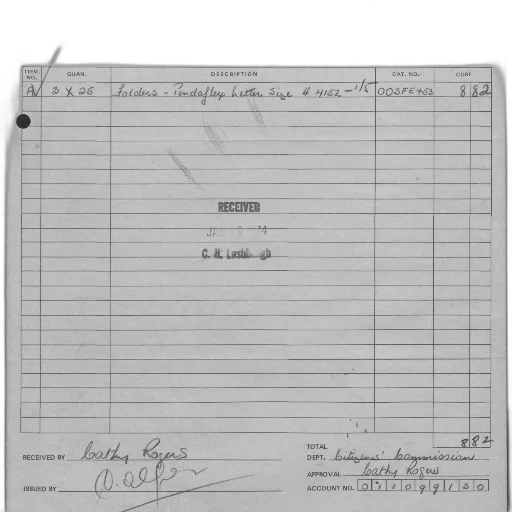 ITEM NO. QUAN. DESCRIPTION CAT. NO. COST
A 3 X 25 Folders - Pendaflex Letter Size # 4152 - 1/5 OOSFE453 8 82
RECEIVED
JAN 74
C. H.
TOTAL 8 82
RECEIVED BY Cathy Rogers DEPT. Citizens' Commission
APPROVAL Cathy Rogers
ISSUED BY ACCOUNT NO. 0 1 1 0 9 9 1 3 0